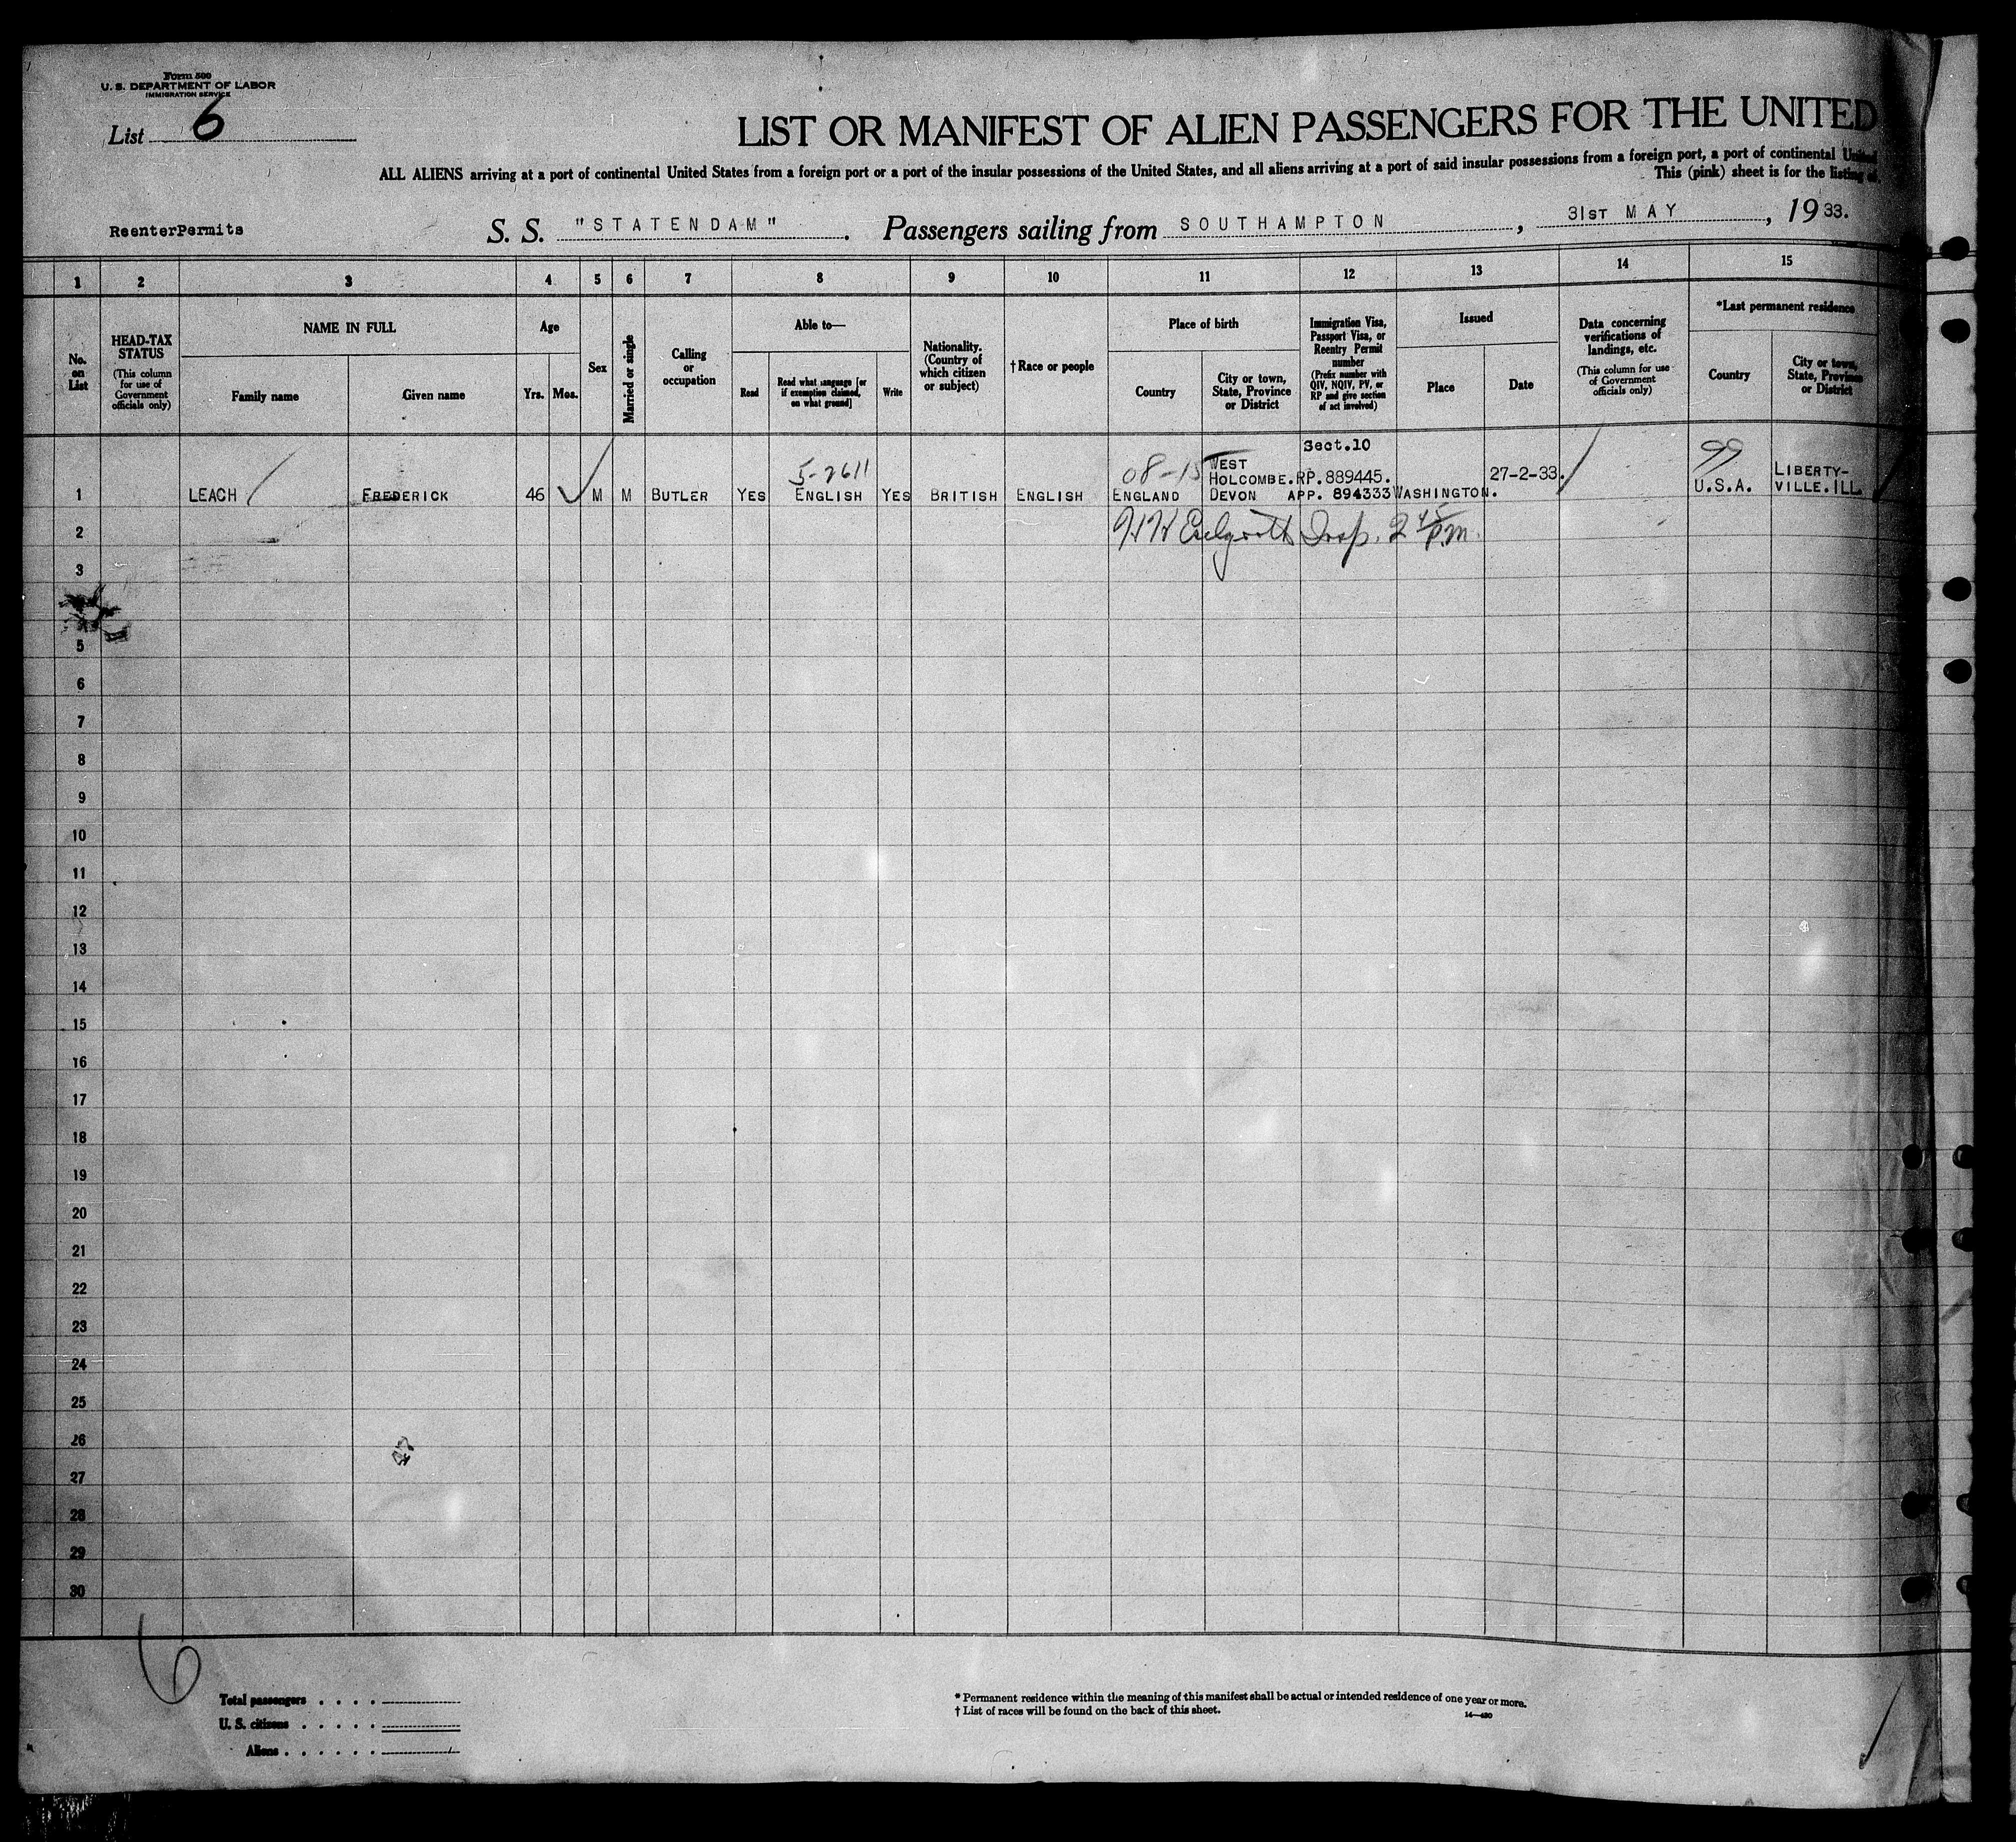 Form 500
U. S. DEPARTMENT OF LABOR
IMMIGRATION SERVICE
List 6
LIST OR MANIFEST OF ALIEN PASSENGERS FOR THE UNITED
ALL ALIENS arriving at a port of continental United States from a foreign port or a port of the insular possessions of the United States, and all aliens arriving at a port of said insular possessions from a foreign port, a port of continental United
This (pink) sheet is for the listing of
ReenterPermits
S. S. "STATENDAM". Passengers sailing from SOUTHAMPTON, 31ST MAY, 19 33.
1 2 3 4 5 6 7 8 9 10 11 12 13 14 15
No. on List
HEAD-TAX STATUS
(This column for use of Government officials only)
NAME IN FULL
Family name
Given name
Age
Yrs. Mos.
Sex
Married or single
Calling or occupation
Able to—
Read
Read what language [or if exemption claimed, on what ground]
Write
Nationality. (Country of which citizen or subject)
†Race or people
Place of birth
Country
City or town, State, Province or District
Immigration Visa, Passport Visa, or Reentry Permit number
(Prefix number with QIV, NQIV, PV, or RP and give section of act involved)
Issued
Place
Date
Data concerning verifications of landings, etc.
(This column for use of Government officials only)
*Last permanent residence
Country
City or town, State, Province or District
Sect.10
5-2611
08-15
WEST
99
HOLCOMBE. RP. 889445. 27-2-33. LIBERTY-
1 LEACH FREDERICK 46 M M BUTLER YES ENGLISH YES BRITISH ENGLISH ENGLAND DEVON APP. 894333 WASHINGTON. U.S.A. VILLE. ILL.
2 Insp. 2 45 PM
3
5
6
7
8
9
10
11
12
13
14
15
16
17
18
19
20
21
22
23
24
25
26
27
28
29
30
6
Total passengers
U. S. citizens
Aliens
* Permanent residence within the meaning of this manifest shall be actual or intended residence of one year or more.
† List of races will be found on the back of this sheet.
14—430